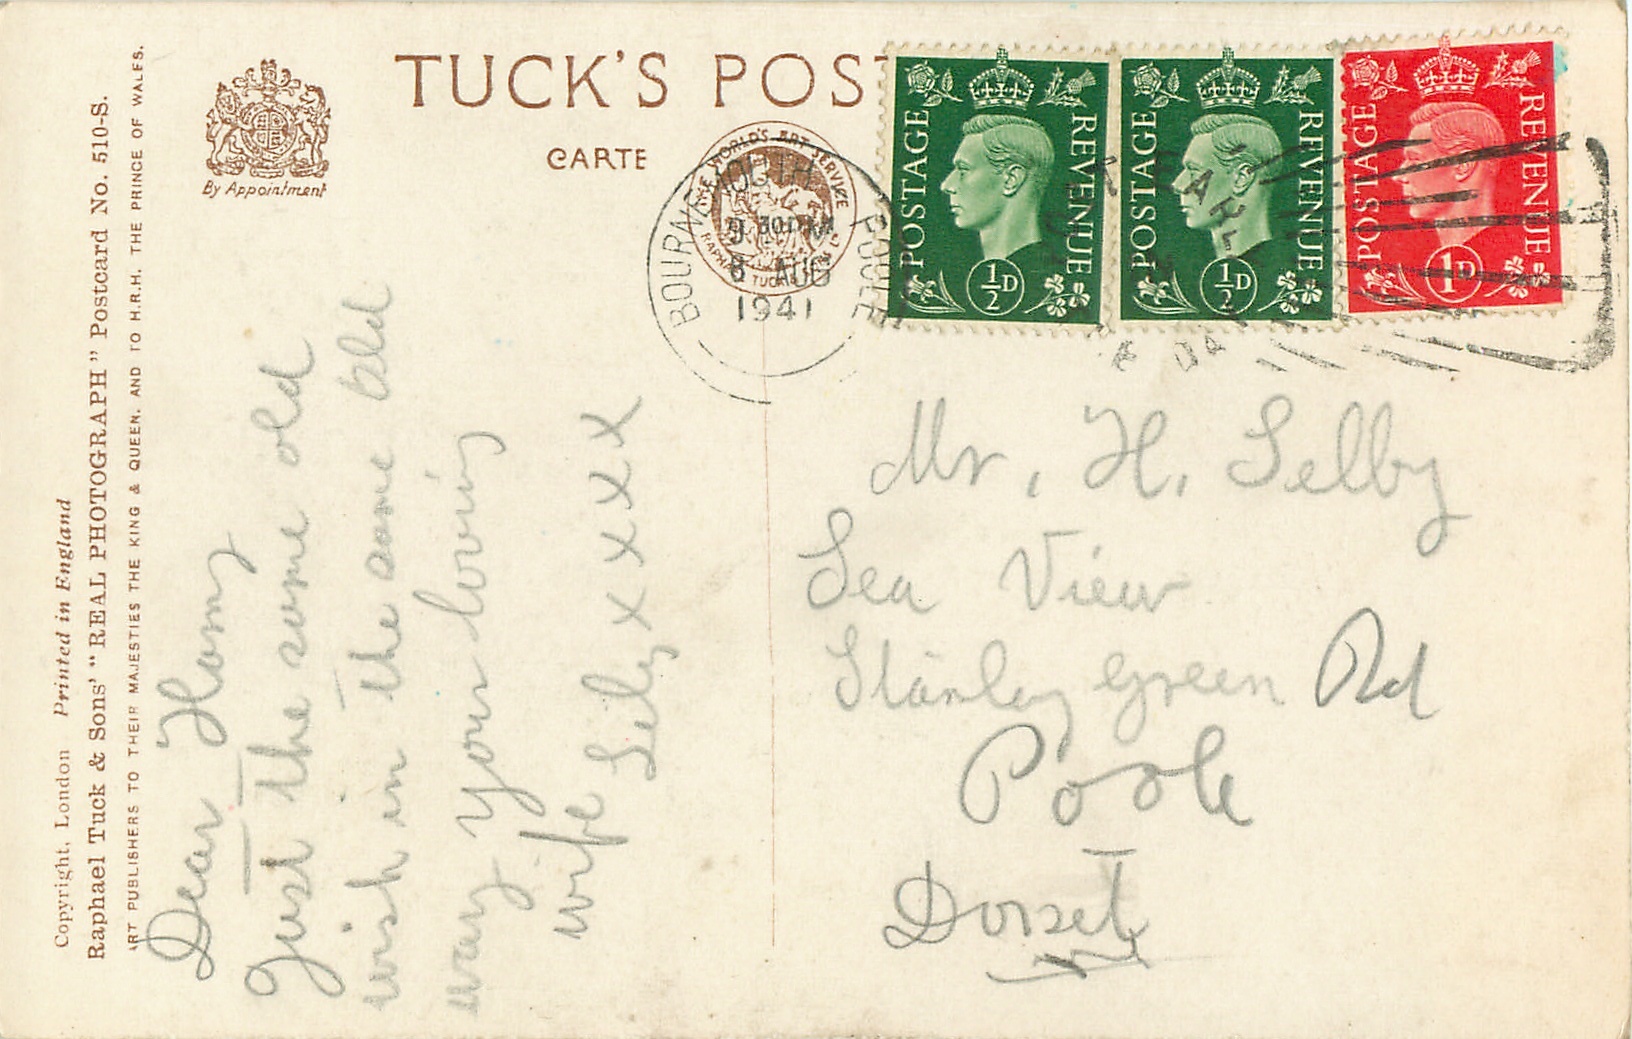 TUCK'S POST
CARTE
By Appointment
THE WORLD'S ART SERVICE
RAPHAEL TUCK
BOURNEMOUTH POOLE
9.30 PM
6 AUG
1941
POSTAGE REVENUE
½D
POSTAGE REVENUE
½D
POSTAGE REVENUE
1D
Copyright, London Printed in England
Raphael Tuck & Sons' "REAL PHOTOGRAPH" Postcard No. 510-S.
ART PUBLISHERS TO THEIR MAJESTIES THE KING & QUEEN, AND TO H.R.H. THE PRINCE OF WALES.
Dear Harry
Just the same old
wish in the same old
way your loving
wife Lily x x x x
Mr, H. Selby
Sea View
Stanley Green Rd
Poole
Dorset